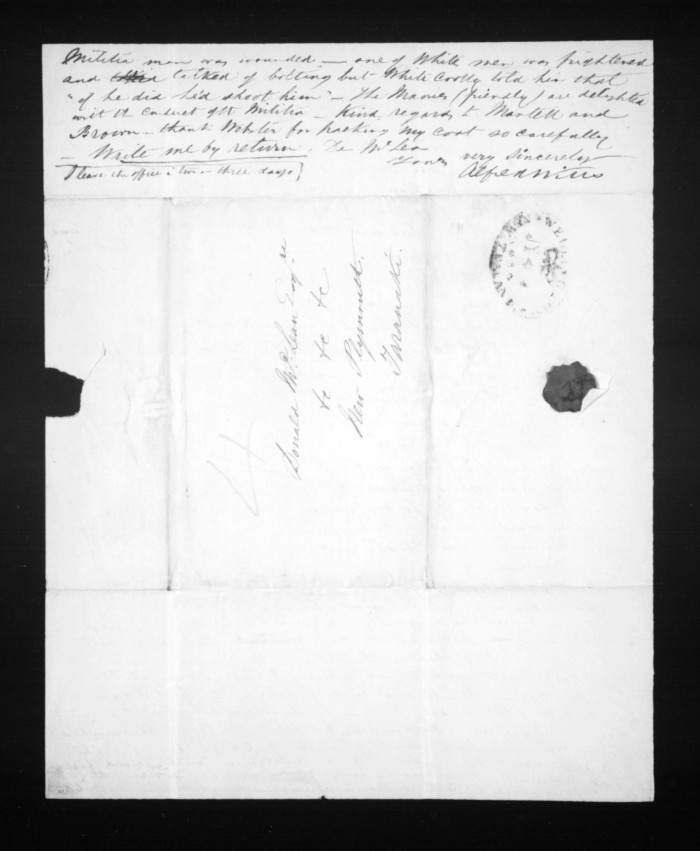 Militia man was wounded – one of White men was frightened
and talked of bolting but White Coolly told him that
"if he did he'd shoot him" – The Maories (friendly) are delighted
with the Conduct of the Militia – Kind regards to Martell and
Brown – thank Webster for packing my Coat so carefully
– Write me by return. Dr McLean
Yours very sincerely
Alfred Wills
two or three days
Donald McLean Esqre
&c &c &c
New Plymouth
Taranaki.
4